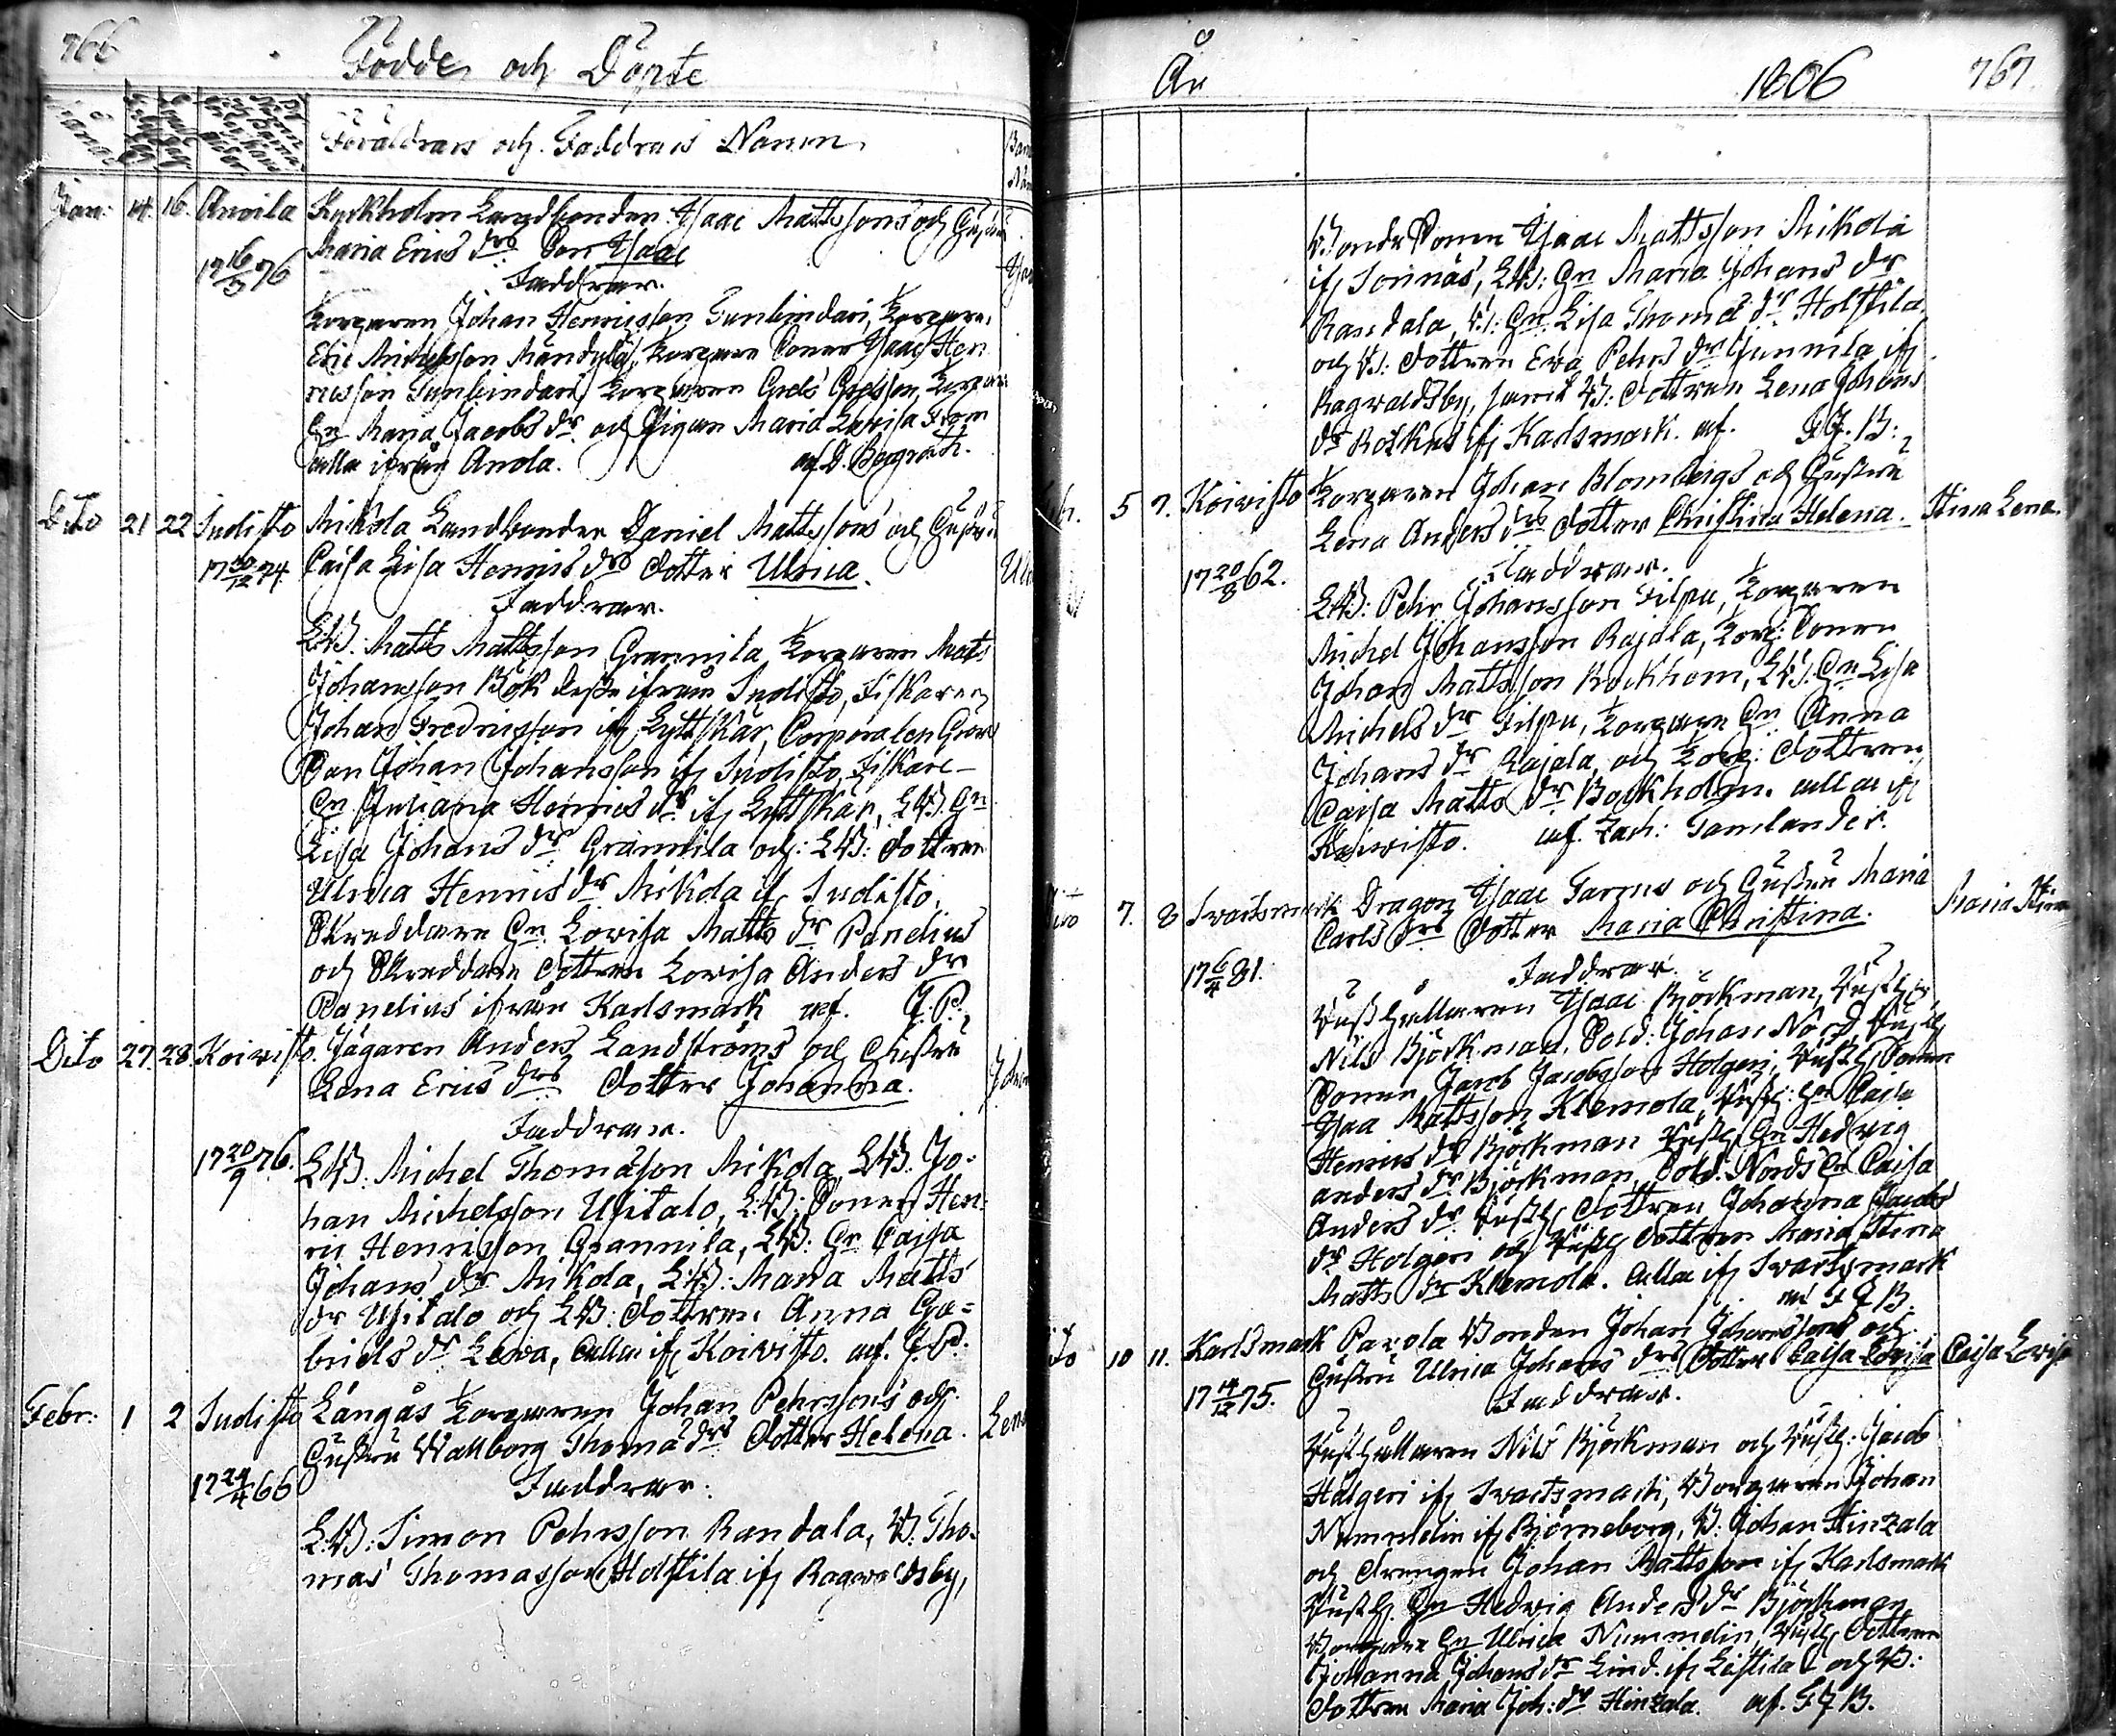 766
Födde och Döpte
Föräldrars och Faddrars Namn
Jan: 14. 16. Anoila Kyrkholm Landbonden Isaac Mattssons och Hustru
Maria Erics drs Son Isaac
17 16/3 76
Faddrar.
Torparen Johan Henricsson Tunbindari, Torparen
Eric Michelsson Mändylä, Torpare Sonen Isaac Hen
ricsson Tunbindari, Torparen Gres Torpare
Hn Maria Jacobs dr och Pigan Maria Lovisa From
alla ifrån Anola. af. G. Bergroth.
Dito 21 22 Sudisto Mickola Landbonden Daniel Mattssons och Hustru
Caisa Lisa Henrics drs Dotter Ulrica.
17 30/12 74.
Faddrar.
LB. Matts Mattsson Grannila Torparen Mats
Johansson Böök desse ifrån Sudisto, Fiskaren
Johan Fredricsson if Lyttskär, Corporalen
Son Johan Johansson if Sudisto, Fiskare-
Hn Juliana Henrics dr if Lyttskär, LB. Hn
Lisa Johans dr Grannila och LB: Dottren
Ulrica Henrics dr Mikola if Sudisto,
Skreddare Hn Lovisa Matts dr Panelius
och Skreddare Dottren Lovisa Anders dr
Panelius ifrån Karlsmark af. J. P.
Dito 27. 28. Koivisto. Jägaren Anders Landströms och Hustru
Lena Erics drs Dotter Johanna.
Faddrar.
17 20/9 76. LB. Michel Thomasson Mikola, LB. Jo-
han Michelsson Ufitalo, LB: Sonen Hen-
ric Henricsson Grannila, LB: Hn Caisa
Johans dr Mikola, LB: Maria Matts
dr Ufitalo och LB: Dottren Anna Ga=
briels dr Leva, alla if Koivisto. af. J. P.
Febr: 1 2 Sudisto Långås Torparen Johan Pehrssons och
Hustru Wallborg Thomæ drs Dotter Helena. Lena
17 24/4 66
Faddrar.
LB: Simon Pehrsson Randala, B. Tho-
mas Thomasson Holstila if Ragvaldsby,
År 1806 767
Bonde Sonen Isaac Mattsson Mikola
if Sonnäs, LB: Hn Maria Johans dr
Randala, B: Hn Lisa Thomæ dr Holstila
och B: Dottren Ewa Pehrs dr Gunnila if
Ragvaldsby, samt B: Dottren Lena Johans
dr Böökus if Karlsmark. af. F J. B:
5 7. Koivisto Torparen Johan Blombergs och Hustru
Lena Anders drs Dotter Christina Helena. Stina Lena.
17 20/8 62.
Faddrar.
LB: Pehr Johansson Filpu, Torparen
Michel Johansson Rajala, Torp: Sonen
Johan Mattsson Bockhom, LB. Hn Lisa
Michels dr Filpu, Torpare Hn Anna
Johans dr Rajala, och Torp: Dottren
Caisa Matts dr Bockholm. alla if
Koivisto. af. Zach: Tamlander.
Dito 7. 8 Svartsmark Dragon Isaac Tarmes och Hustru Maria
Carls drs Dotter Maria Christina. Maria Stina
17 6/4 81.
Faddrar.
Husthållaren Isaac Björkman, Husth:
Nils Björkman, Sold: Johan Nord, Husth
Sonen Jacob Jacobsson Holgeri, Husth Sonen
Isaa Mattsson Klemola, Husth: Hn Caisa
Henrics dr Björkman Husth. Hn Hedvig
anders dr Björkman, Sold: Nords Hn Caisa
Anders dr Husth. Dottren Johanna Jacobs
dr Holgeri och Husth Dottren Maria Stina
Matts dr Klemola. alla if Svartsmark
af F J B.
Dito 10 11. Karlsmark Pavola Bonden Johan Johanssons och
Hustru Ulrica Johans drs Dotter Caisa Lovisa Caisa Lovisa
17 14/12 75.
Faddrar.
Husthållaren Nils Björkman och Husth: Jacob
Hålgeri if Svartsmark, Borgaren Johan
Nummelin if Björneborg, B: Johan Hinzala
och Drengen Johan Mattsson if Karlsmark
Husth. Hn Hedvig Anders dr Björkman
Borgare Hn Ulrica Nummelin, Husth Dottren
Johanna Johans dr Lind. if Leistila och B:
Dottren Maria Joh: dr Hinzala. af. F J B.